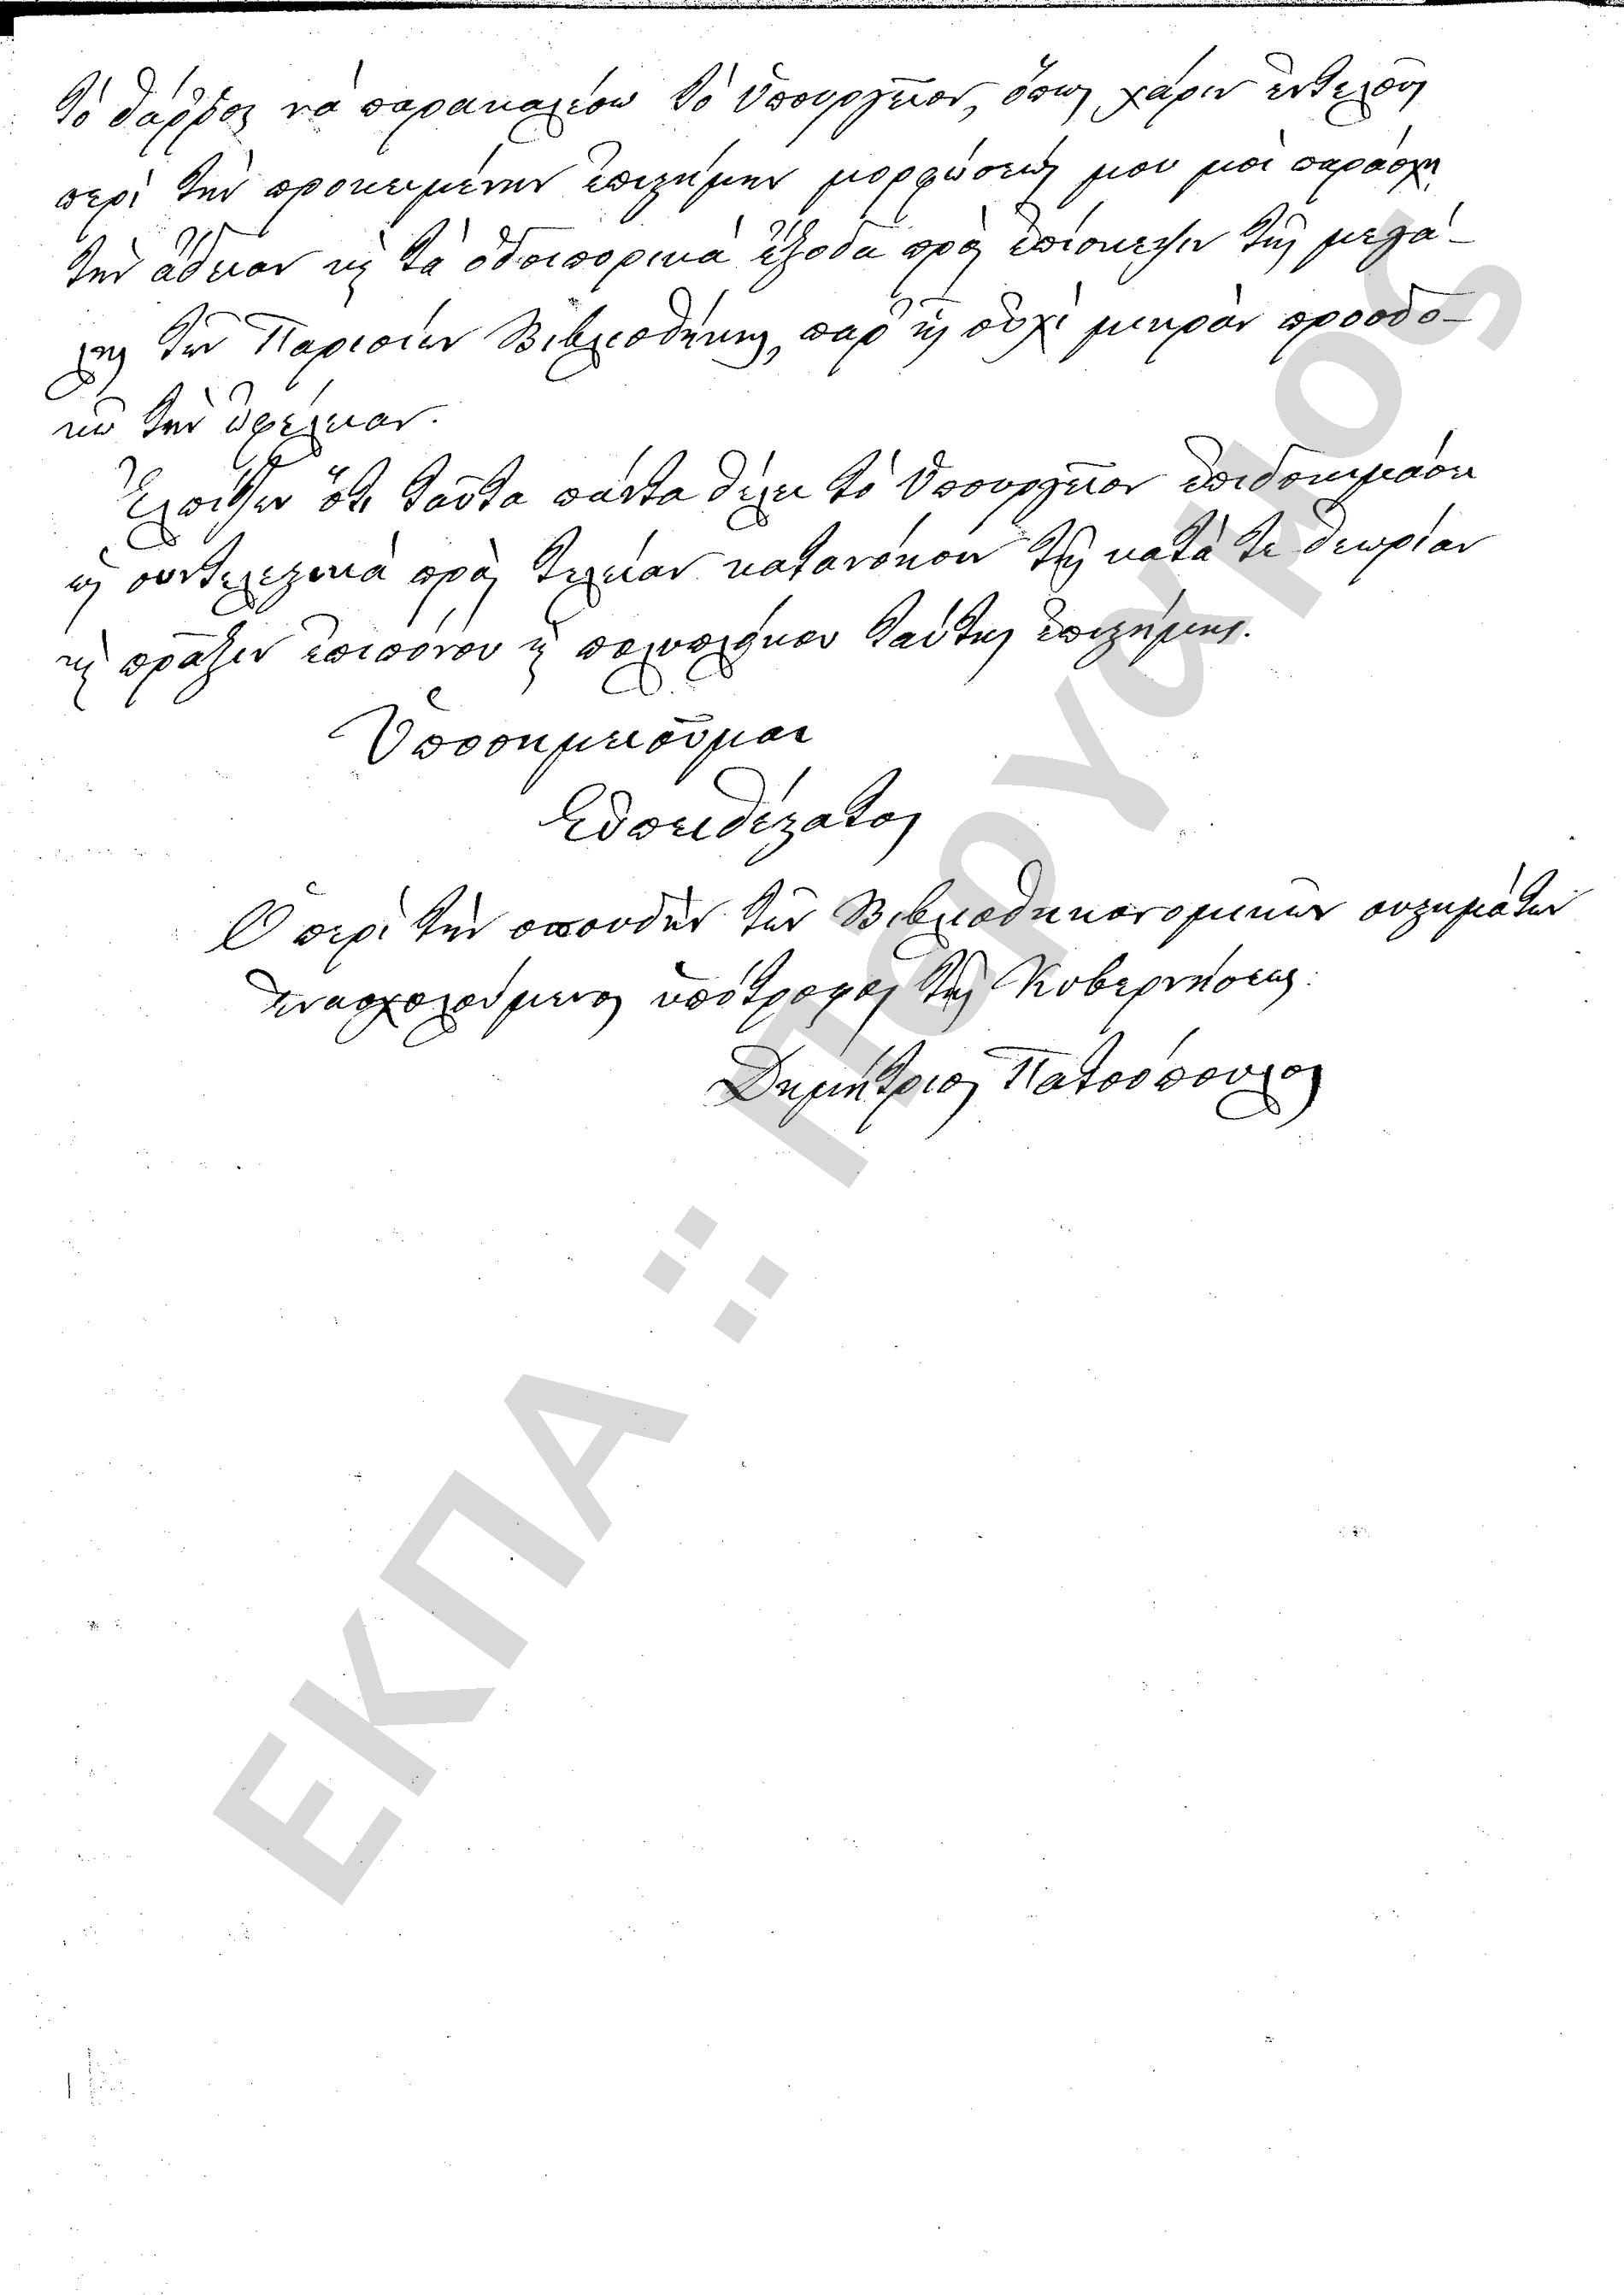 τὸ θάῤῥος νὰ παρακαλέσω τὸ Ὑπουργεῖον, ὅπως χάριν ἐντελοῦς
περὶ τὴν προκειμένην ἐπιστήμην μορφώσεώς μου μοὶ παράσχῃ
τὴν ἄδειαν καὶ τὰ ὁδοιπορικὰ ἔξοδα πρὸς ἐπίσκεψιν τῆς μεγά-
λης τῶν Παρισίων Βιβλιοθήκης, παρ' ἧς οὐχὶ μικρὰν προσδο-
κῶ τὴν ὠφέλειαν.
Ἐλπίζω ὅτι ταῦτα πάντα θέλει τὸ Ὑπουργεῖον ἐπιδοκιμάσει
ὡς συντελεστικὰ πρὸς τελείαν κατανόησιν τῆς κατά τε θεωρίαν
καὶ πρᾶξιν ἐπιπόνου καὶ πολυπλόκου ταύτης ἐπιστήμης.
Ὑποσημειοῦμαι
Εὐπειθέστατος
Ὁ περὶ τὴν σπουδὴν τῶν Βιβλιοθηκονομικῶν συστημάτων
ἐνασχολούμενος ὑπότροφος τῆς Κυβερνήσεως.
Δημήτριος Πατσόπουλος
ΕΚΠΑ :: Πέργαμος